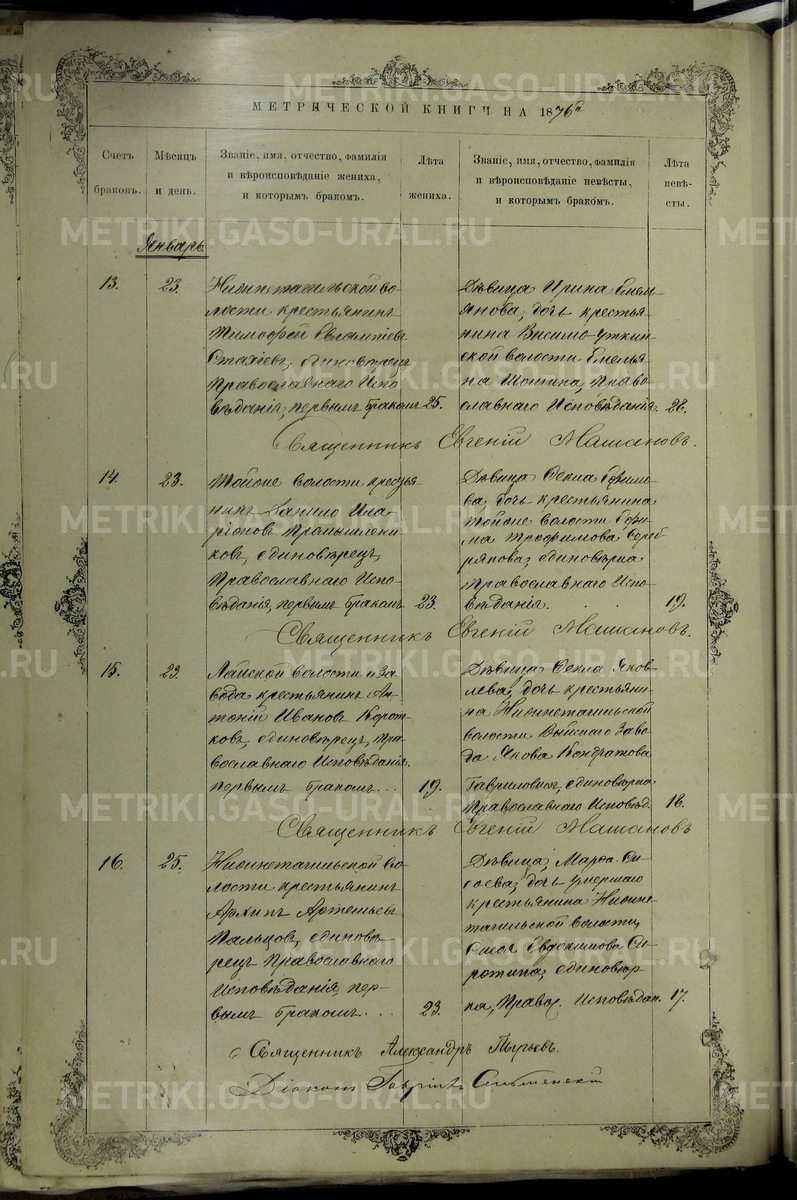 МЕТРИЧЕСКОЙ КНИГИ НА 1876й
Счетъ браковъ.
Мѣсяцъ и день.
Званіе, имя, отчество, фамилія
и вѣроисповѣданіе жениха,
и которымъ бракомъ.
Лѣта жениха.
Званіе, имя, отчество, фамилія
и вѣроисповѣданіе невѣсты,
и которымъ бракомъ.
Лѣта невѣ-
сты.
Январь.
13. 23.
Нижнетагильской во
лости крестьянинъ
Тимофей
единовѣрецъ
Православнаго Испо
вѣданія, первымъ бракомъ 25.
Дѣвица Ирина Емель
янова, дочь крестья
нина Висимо-Уткин
ской волости Емелья
на право
славнаго Исповѣданія. 26.
Священникъ Евгеній Машановъ.
14. 23.
Тойже волости крестья
нинъ Данило Ила
ріоновъ Промышлени
ковъ, единовѣрецъ,
Православнаго Испо
вѣданія, первымъ бракомъ 23.
Дѣвица Фекла Ефимо
ва, дочь крестьянина
тойже волости Ефи
ма Трофимова Сереб
рякова, единовѣрка
православнаго Испо
вѣданія. 19.
Священникъ Евгеній Машановъ.
15. 23.
Лайской волости и За
вода крестьянинъ Ан
тоній Ивановъ Корот
ковъ, единовѣрецъ, пра
вославнаго Исповѣданія.
первымъ бракомъ... 19.
Дѣвица Фекла Яков
лева, дочь крестьяни
на Нижнетагильской
волости Выйскаго Заво
да Якова Кондратова
Гавриловыхъ, единовѣрка
Православнаго Исповѣд. 18.
Священникъ Евгеній Машановъ
16. 25.
Нижнетагильской во
лости крестьянинъ
Архипъ Артемьевъ
Пальцовъ, единовѣ
рецъ Православнаго
Исповѣданія, пер
вымъ бракомъ... 23.
Дѣвица, Марфа Си
соева, дочь умершаго
крестьянина Нижне
тагильской волости,
Сысоя Евдокимова Си
ротина, единовѣр
ка, Правос. Исповѣдан. 17.
Священникъ Александръ Пырьевъ.
Діаконъ Гавріилъ
METRIKI.GASO-URAL.RU